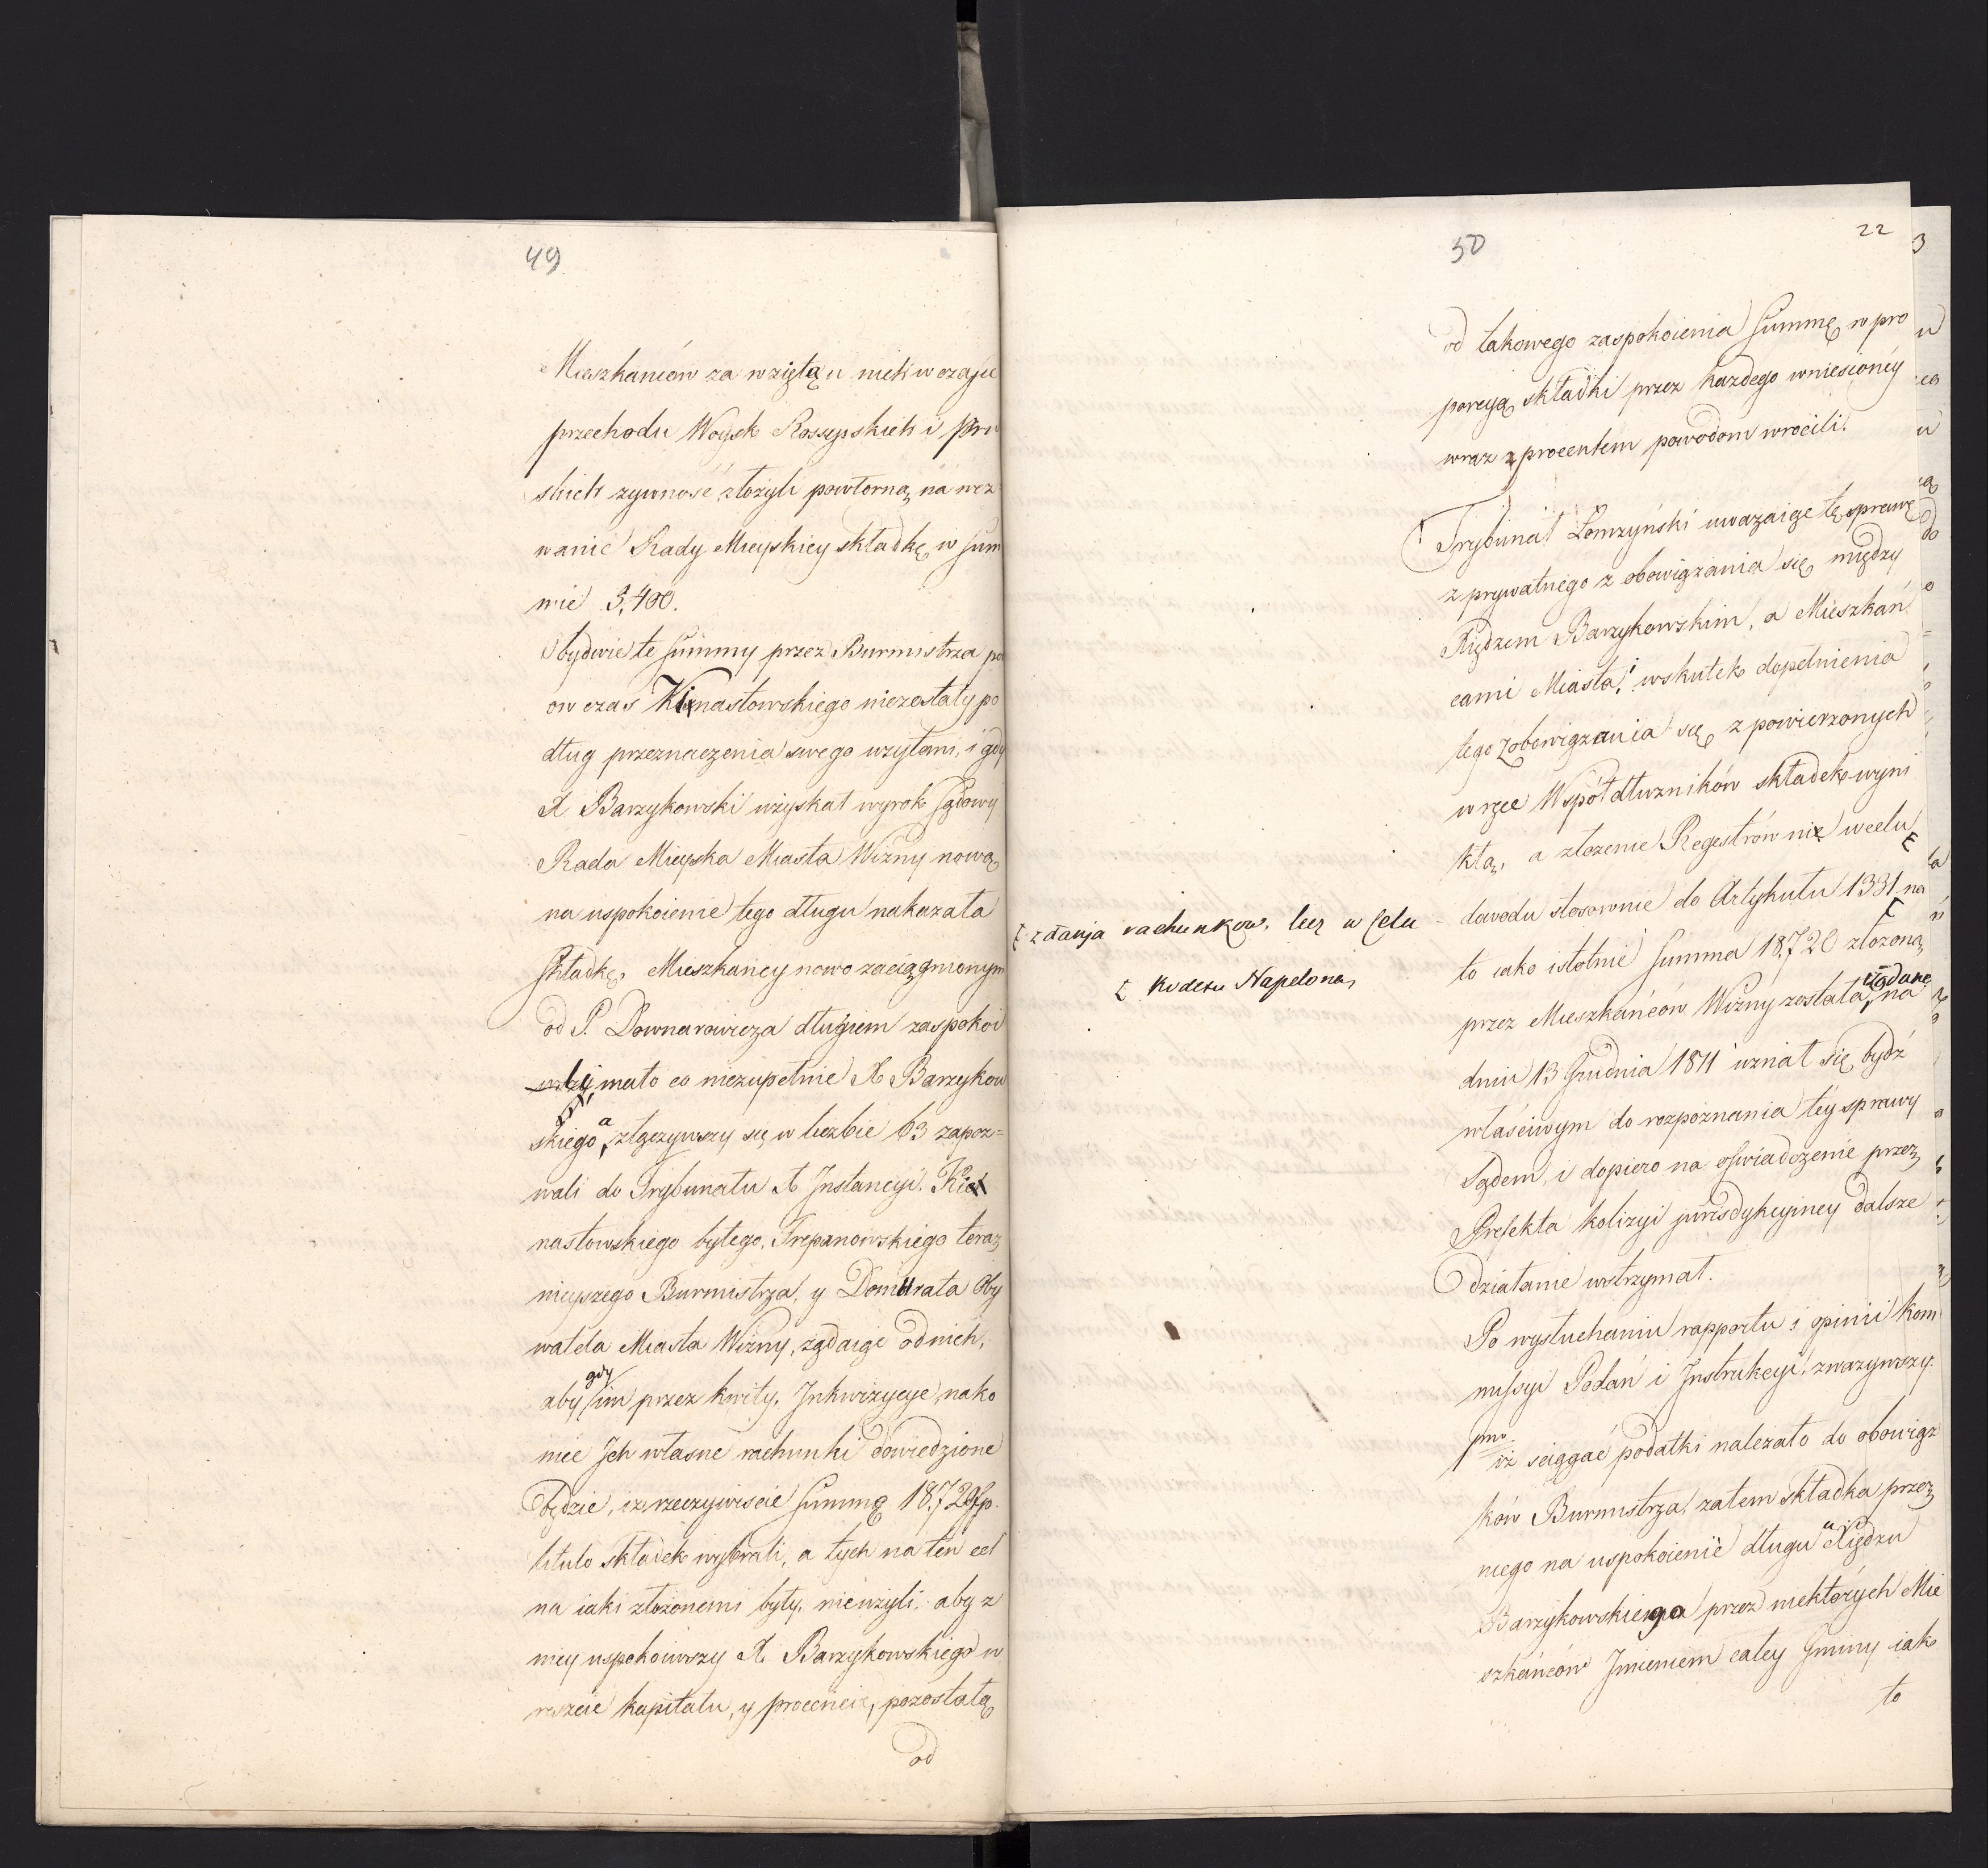 49
Mieszkańców za wziętą u nich w czasie
przechodu Woysk Rossyiskich i Pru
skich zywność złożyli powtorną na wez
wanie Rady Mieyskiey składkę w sum
mie 3,400.
Obydwie te summy przez Burmistrza po
ow czas Kinastowskiego niezostały po
dług przeznaczenia swego użytemi, i gdy
X Barzykowski uzyskał wyrok sądowy
Rada Mieyska Miasta Wizny nową
na uspokoienie tego długu nakazała
składkę. Mieszkańcy nowo zaciągnionym
od P. Downarowicza długiem zaspokoi
li, mało co niezupełnie X Barzykow
skiego, a złączywszy się w liczbie 63 zapoz=
wali do Trybunału I Instancyi. Kie
nastowskiego byłego, Trepanowskiego teraz
nieyszego Burmistrza, y Domurata Oby
watela Miasta Wizny, żądaiąc od nich,
aby gdy im przez kwity, Inkwizycye, nako
niec Ich własne rachunki dowiedzione
będzie, iż rzeczywiscie Summę 18,729 złp.
titulo składek wybrali, a tych na ten cel
na iaki złożonemi były, nieużyli, aby z
niey uspokoiwszy X. Barzykowskiego w
reszcie kapitału, y procencie, pozostałą
od
50
22
od takowego zaspokoienia Summę w pro
porcyą składki przez każdego wniesioney
wraz z procentem powodom wrócili.
Trybunał Łomżyński uważaiąc tę sprawę
z prywatnego z obowiązania się między
Xiędzem Barzykowskim, a Mieszkań
cami Miasta, i wskutek dopełnienia
tego zobowiązania się z powierzonych
w ręce Współdłużników składek wyni
kłą, a złożenie Regestrów nie w celu
[ zdania rachunkow, lecz w celu
dowodu stosownie do Artykułu 1331 [ na
[ Kodexu Napoleona,
to iako istotnie Summa 18,720 złożoną
przez Mieszkańców Wizny została, żądane na
dniu 13 Grudnia 1811 uznał się bydź
właściwym do rozpoznania tey sprawy
Sądem, i dopiero na oświadczenie przez
Prefekta kolizyi jurisdykcyiney dalsze
działanie wstrzymał.
Po wysłuchaniu rapportu i opinii Kom
missyi Podań i Instrukcyi, zważywszy
1mo iż sciągać podatki należało do obowiąz
ków Burmistrza, zatem składka przez
niego na uspokoienie długu u Xiędza
Barzykowskiego przez niektórych Mie
szkańców Imieniem całey Gminy iak
to